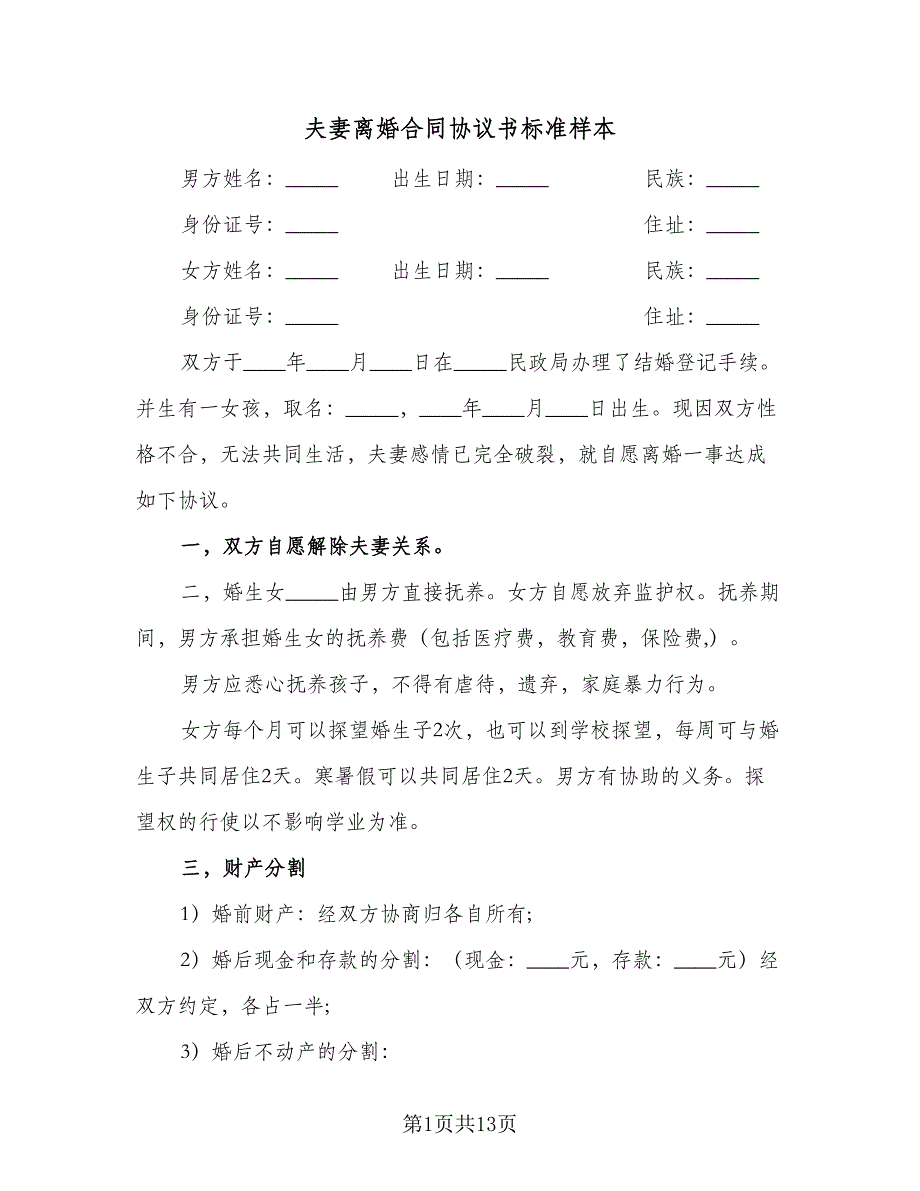 夫妻离婚合同协议书标准样本
男方姓名：_____ 出生日期：_____ 民族：_____
身份证号：_____ 住址：_____
女方姓名：_____ 出生日期：_____ 民族：_____
身份证号：_____ 住址：_____
双方于____年____月____日在_____民政局办理了结婚登记手续。
并生有一女孩，取名：_____，____年____月____日出生。现因双方性
格不合，无法共同生活，夫妻感情已完全破裂，就自愿离婚一事达成
如下协议。
一，双方自愿解除夫妻关系。
二，婚生女_____由男方直接抚养。女方自愿放弃监护权。抚养期
间，男方承担婚生女的抚养费（包括医疗费，教育费，保险费,）。
男方应悉心抚养孩子，不得有虐待，遗弃，家庭暴力行为。
女方每个月可以探望婚生子2次，也可以到学校探望，每周可与婚
生子共同居住2天。寒暑假可以共同居住2天。男方有协助的义务。探
望权的行使以不影响学业为准。
三，财产分割
1）婚前财产：经双方协商归各自所有;
2）婚后现金和存款的分割：（现金：____元，存款：____元）经
双方约定，各占一半;
3）婚后不动产的分割：
第1页共13页